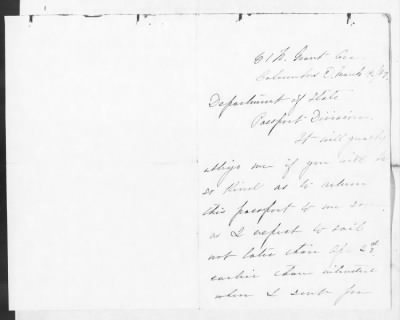 61 N. Grant Ave.
Columbus O. March
Department of State
Passport Division.
It will greatly
oblige me if you will be
so kind as to return
this passport to me
as I expect to sail
not later than Ap. 23rd
earlier than intended
when I sent for